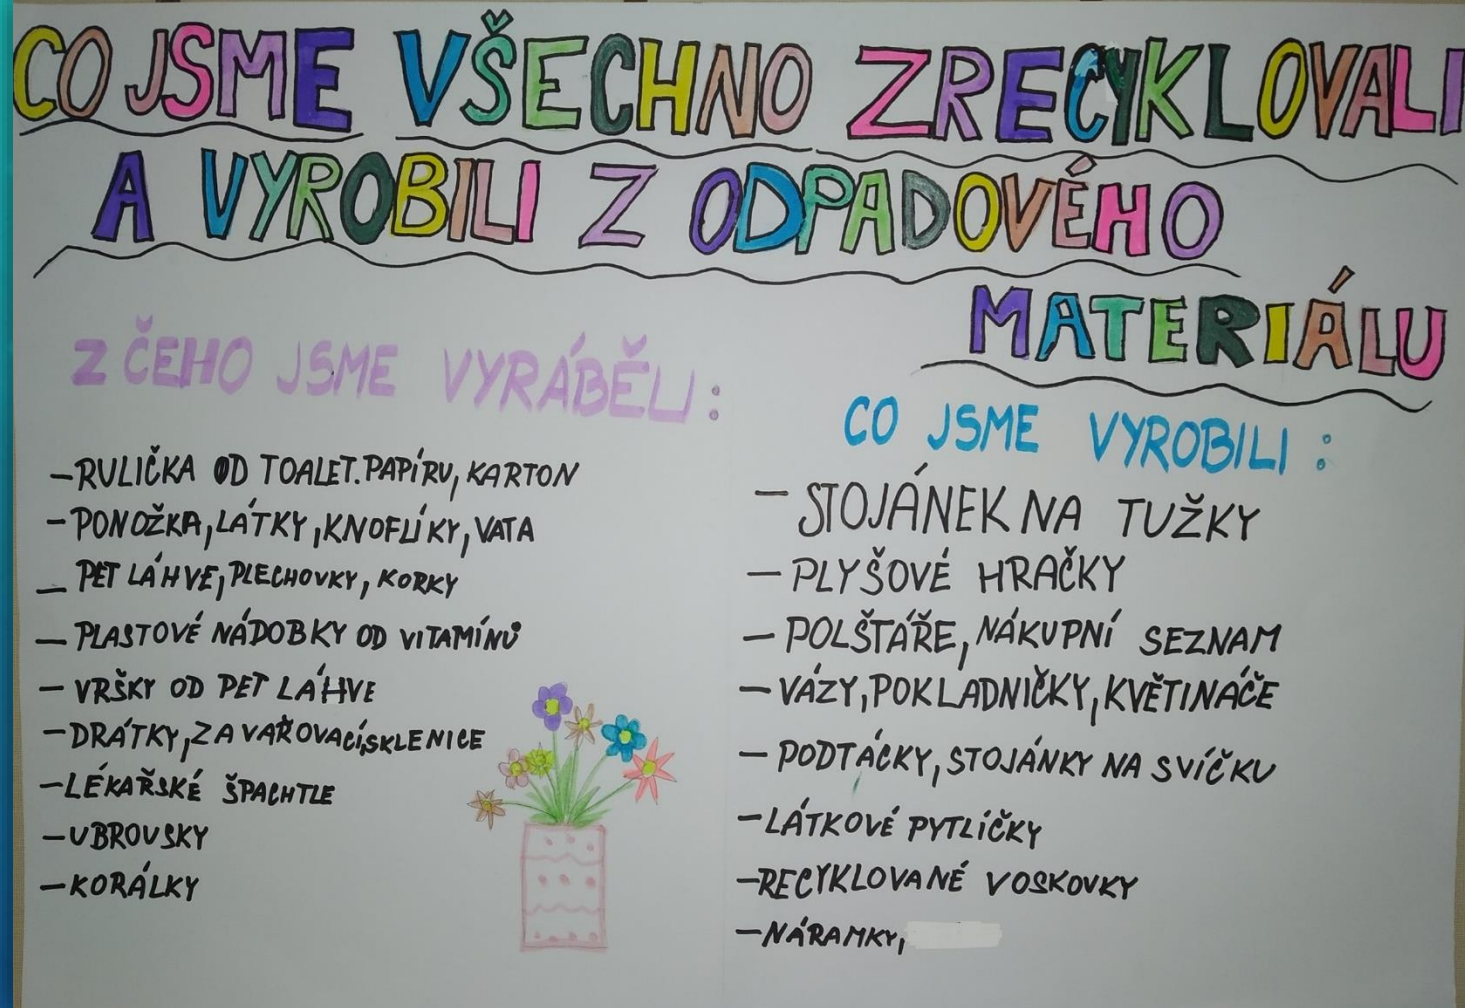 CO JSME VŠECHNO ZRECYKLOVALI
A VYROBILI Z ODPADOVÉHO
MATERIÁLU
Z ČEHO JSME VYRÁBĚLI:
–RULIČKA OD TOALET.PAPÍRU, KARTON
–PONOŽKA, LÁTKY, KNOFLÍKY, VATA
– PET LÁHVE, PLECHOVKY, KORKY
– PLASTOVÉ NÁDOBKY OD VITAMÍNŮ
– VRŠKY OD PET LÁHVE
–DRÁTKY, ZAVAŘOVACÍ SKLENICE
–LÉKAŘSKÉ ŠPACHTLE
–UBROUSKY
–KORÁLKY
CO JSME VYROBILI:
– STOJÁNEK NA TUŽKY
– PLYŠOVÉ HRAČKY
– POLŠTÁŘE, NÁKUPNÍ SEZNAM
– VÁZY, POKLADNIČKY, KVĚTINÁČE
– PODTÁCKY, STOJÁNKY NA SVÍČKU
–LÁTKOVÉ PYTLÍČKY
–RECYKLOVANÉ VOSKOVKY
–NÁRAMKY,